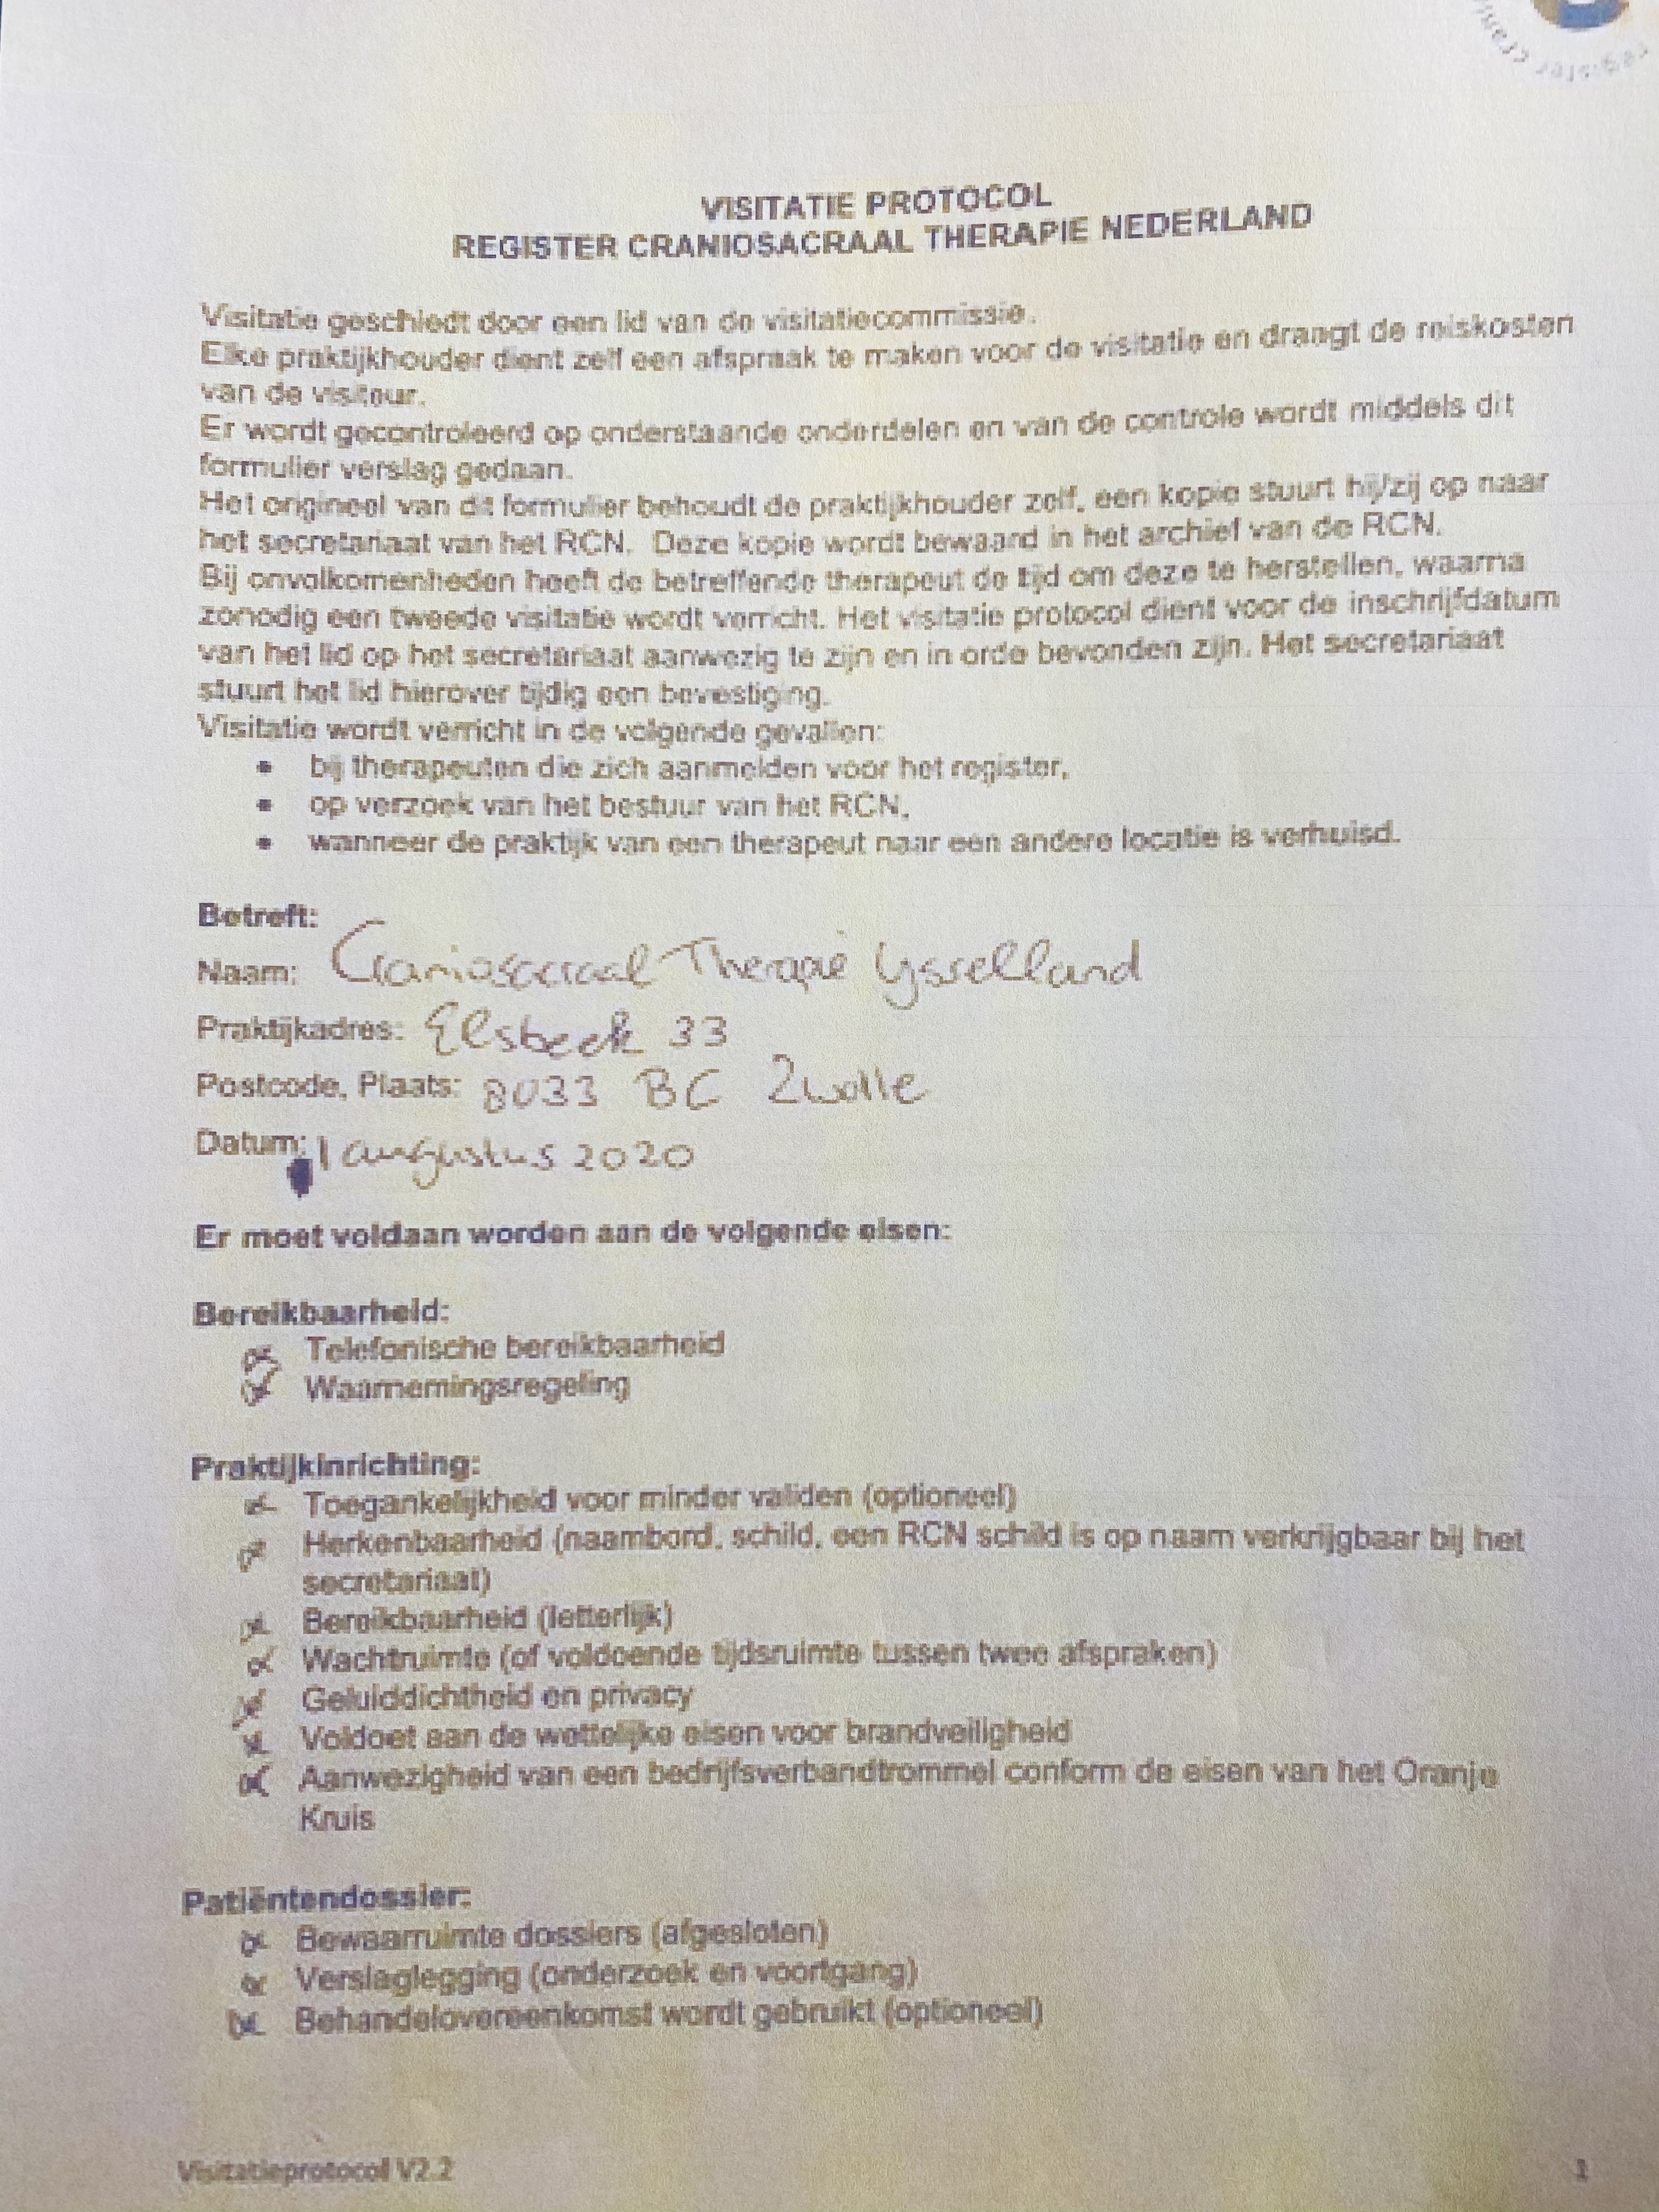 register crani
VISITATIE PROTOCOL
REGISTER CRANIOSACRAAL THERAPIE NEDERLAND
Visitatie geschiedt door een lid van de visitatiecommissie.
Elke praktijkhouder dient zelf een afspraak te maken voor de visitatie en draagt de reiskosten
van de visiteur.
Er wordt gecontroleerd op onderstaande onderdelen en van de controle wordt middels dit
formulier verslag gedaan.
Het origineel van dit formulier behoudt de praktijkhouder zelf, een kopie stuurt hij/zij op naar
het secretariaat van het RCN. Deze kopie wordt bewaard in het archief van de RCN.
Bij onvolkomenheden heeft de betreffende therapeut de tijd om deze te herstellen, waarna
zonodig een tweede visitatie wordt verricht. Het visitatie protocol dient voor de inschrijfdatum
van het lid op het secretariaat aanwezig te zijn en in orde bevonden zijn. Het secretariaat
stuurt het lid hierover tijdig een bevestiging.
Visitatie wordt verricht in de volgende gevallen:
• bij therapeuten die zich aanmelden voor het register,
• op verzoek van het bestuur van het RCN,
• wanneer de praktijk van een therapeut naar een andere locatie is verhuisd.
Betreft:
Naam: Craniosacraal Therapie Ijsselland
Praktijkadres: Elsbeek 33
Postcode, Plaats: 8033 BC Zwolle
Datum: 1 augustus 2020
Er moet voldaan worden aan de volgende eisen:
Bereikbaarheid:
Telefonische bereikbaarheid
Waarnemingsregeling
Praktijkinrichting:
Toegankelijkheid voor minder validen (optioneel)
Herkenbaarheid (naambord, schild, een RCN schild is op naam verkrijgbaar bij het
secretariaat)
Bereikbaarheid (letterlijk)
Wachtruimte (of voldoende tijdsruimte tussen twee afspraken)
Geluiddichtheid en privacy
Voldoet aan de wettelijke eisen voor brandveiligheid
Aanwezigheid van een bedrijfsverbandtrommel conform de eisen van het Oranje
Kruis
Patiëntendossier:
Bewaarruimte dossiers (afgesloten)
Verslaglegging (onderzoek en voortgang)
Behandelovereenkomst wordt gebruikt (optioneel)
Visitatieprotocol V2.2
1